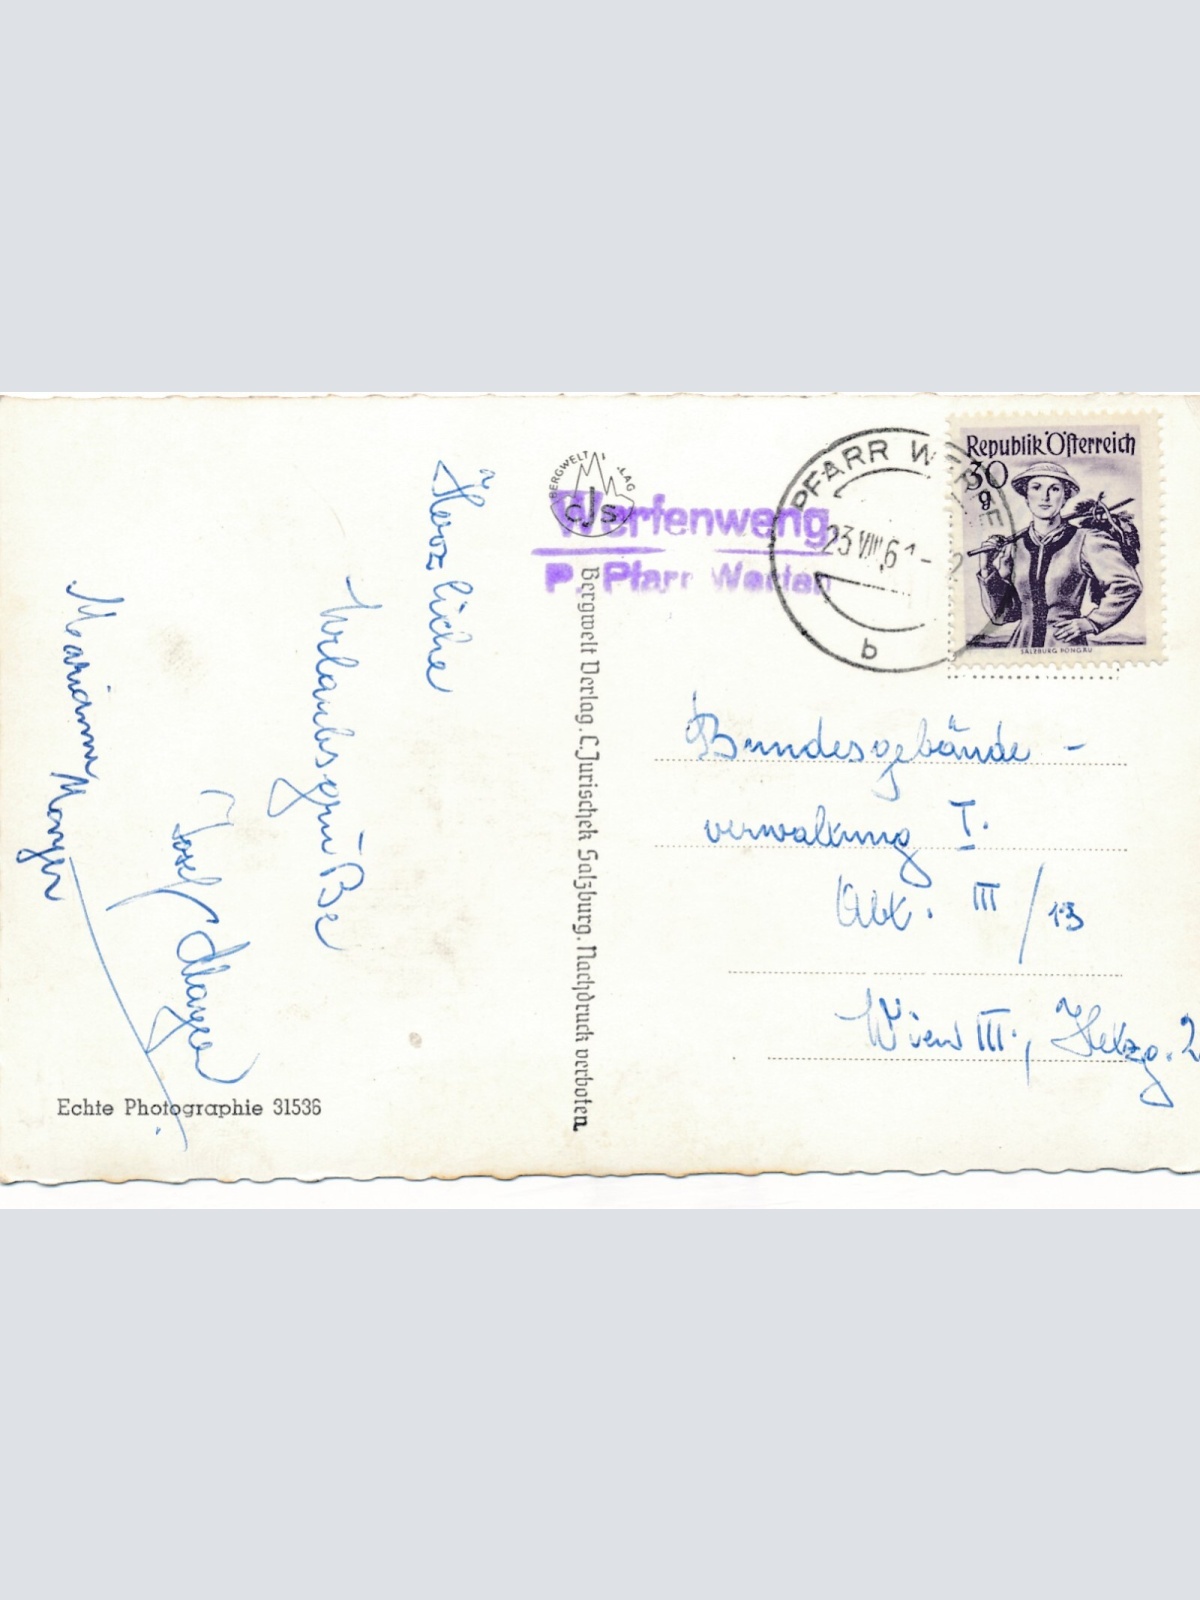 Herzliche
Urlaubsgrüße
Josef
Marianne
Echte Photographie 31536
BERGWELT
CJS
Bergwelt Verlag. C. Jurischek Salzburg. Nachdruck verboten
Werfenweng
P. Pfarr Werfen
PFARR WERFEN
23 VIII 61
b
Republik Österreich
30
g
SALZBURG PONGAU
Bundesgebäude-
verwaltung I.
Abt. III/13
Wien III., Hetzg. 2